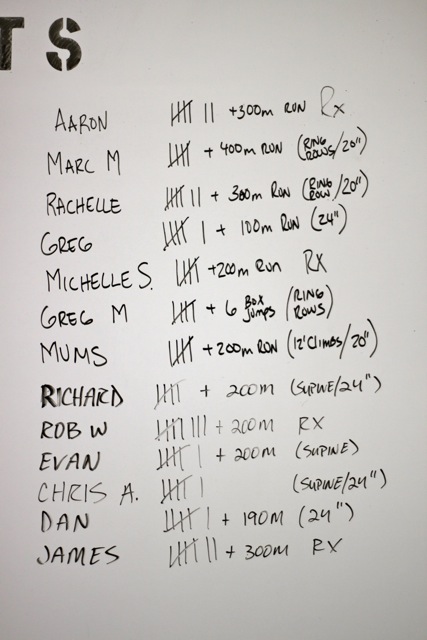 TS
AARON 𝍸 || +300m RUN Rx
MARC M 𝍸 + 400m RUN (RING ROWS/20")
RACHELLE 𝍸 || + 300m RUN (RING ROW/20")
GREG 𝍸 | + 100m RUN (24")
MICHELLE S. 𝍸 +200m RUN RX
GREG M 𝍸 + 6 BOX JUMPS (RING ROWS)
MUMS 𝍸 + 200m RUN (12' CLIMBS/20")
RICHARD 𝍸 + 200M (SUPINE/24")
ROB W 𝍸 ||| + 200M RX
EVAN 𝍸 | + 200M (SUPINE)
CHRIS A. 𝍸 | (SUPINE/24")
DAN 𝍸 | + 190M (24")
JAMES 𝍸 || + 300M RX